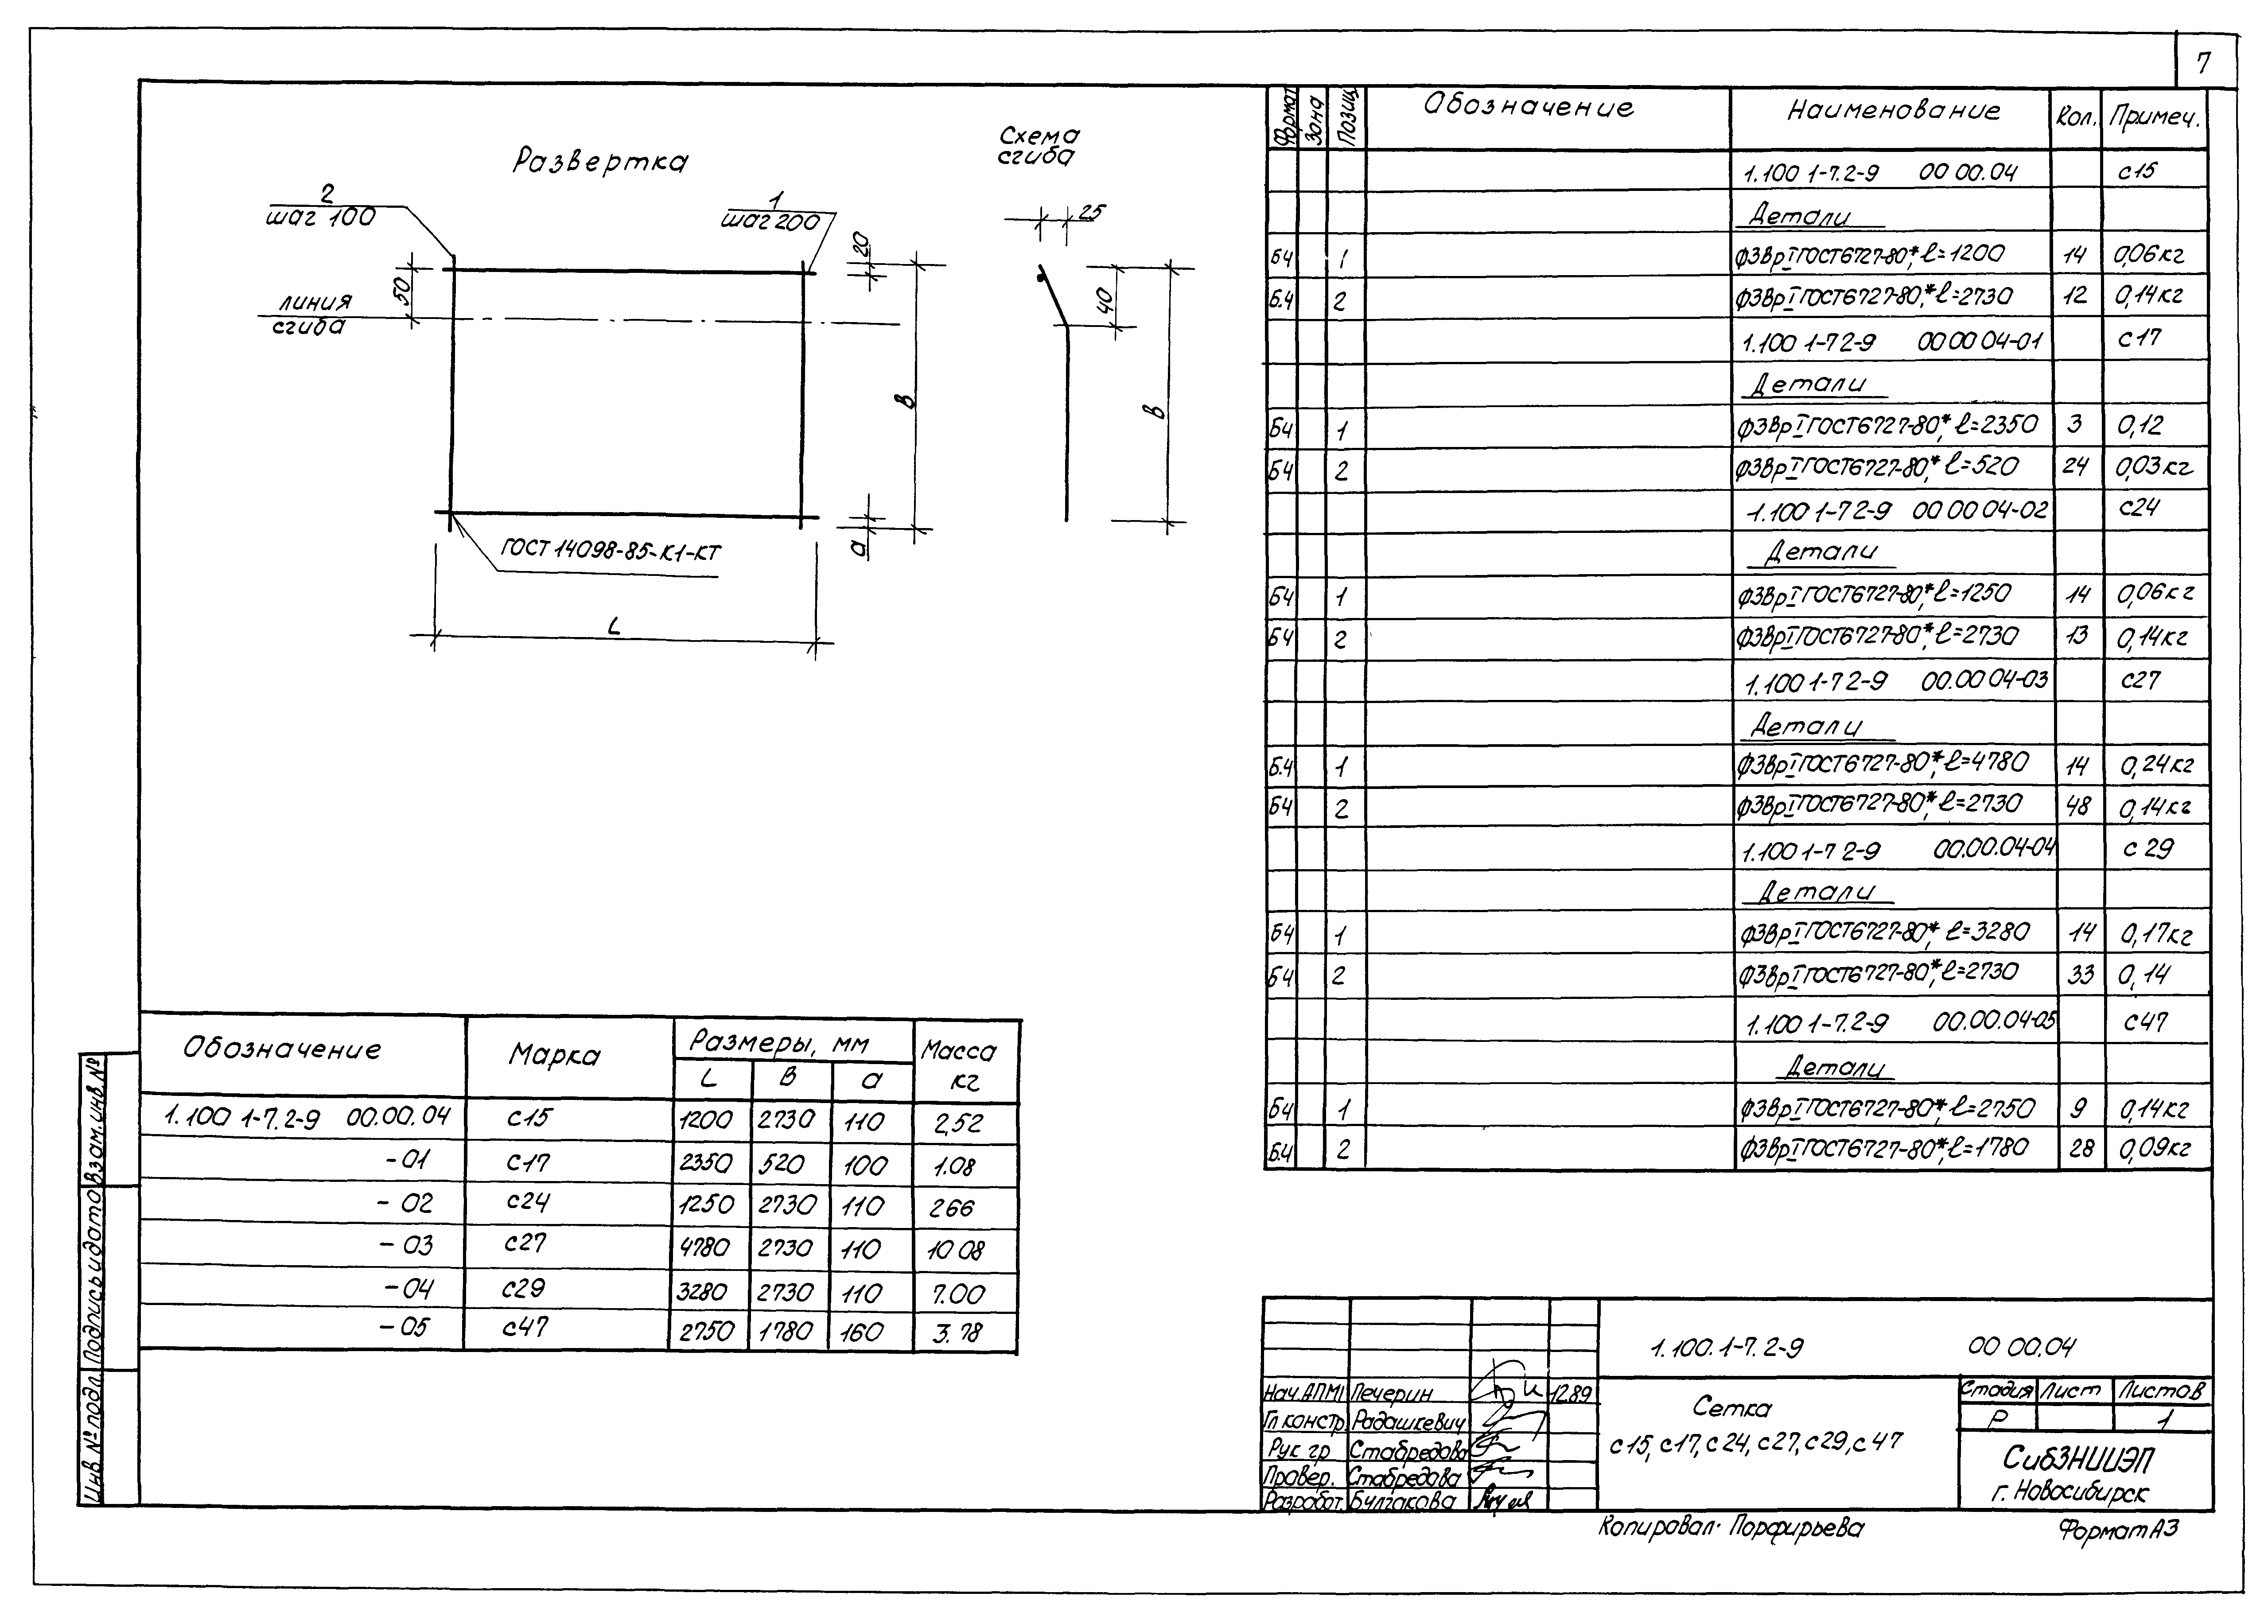 7
Развертка
Схема
сгиба
2
шаг 100
1
шаг 200
20
25
50
линия
сгиба
40
В
В
а
ГОСТ 14098-85-К1-КТ
L
Формат Зона Позиц Обозначение Наименование Кол. Примеч.
1.100 1-7.2-9 00 00.04 с15
Детали
Б4 1 Ф3ВрI ГОСТ6727-80*, ℓ=1200 14 0,06кг
Б.4 2 Ф3ВрI ГОСТ6727-80,* ℓ=2730 12 0,14кг
1.100 1-7 2-9 00 00 04-01 с17
Детали
Б4 1 Ф3ВрI ГОСТ6727-80,* ℓ=2350 3 0,12
Б4 2 Ф3ВрI ГОСТ6727-80,* ℓ=520 24 0,03кг
1.100 1-7 2-9 00 00 04-02 с24
Детали
Б4 1 Ф3ВрI ГОСТ6727-80,* ℓ=1250 14 0,06кг
Б4 2 Ф3ВрI ГОСТ6727-80,* ℓ=2730 13 0,14кг
1.100 1-7 2-9 00.00 04-03 с27
Детали
Б.4 1 Ф3ВрI ГОСТ6727-80,* ℓ=4780 14 0,24кг
Б4 2 Ф3ВрI ГОСТ6727-80,* ℓ=2730 48 0,14кг
1.100 1-7 2-9 00.00.04-04 с 29
Детали
Б4 1 Ф3ВрI ГОСТ6727-80,* ℓ=3280 14 0,17кг
Б4 2 Ф3ВрI ГОСТ6727-80,* ℓ=2730 33 0,14
1.100 1-7.2-9 00.00.04-05 с47
Детали
Б4 1 Ф3ВрI ГОСТ6727-80*, ℓ=2750 9 0,14кг
Б.4 2 Ф3ВрI ГОСТ6727-80*, ℓ=1780 28 0,09кг
Обозначение Марка Размеры, мм Масса
кг
L В а
1.100 1-7.2-9 00.00.04 с15 1200 2730 110 2,52
-01 с17 2350 520 100 1.08
- 02 с24 1250 2730 110 2 66
- 03 с27 4780 2730 110 10 08
- 04 с29 3280 2730 110 7.00
- 05 с47 2750 1780 160 3.78
Взам.инв.№
Подпись и дата
Инв.№ подл.
1.100.1-7.2-9 00 00.04
Нач.АПМ1 Печерин 12.89
Гл констр. Радашкевич
Рук гр Стабредова
Провер. Стабредова
Разработ. Булгакова
Сетка
с15, с17, с24, с27, с29, с47
Стадия Лист Листов
Р 1
СибЗНИИЭП
г. Новосибирск
Копировал· Порфирьева Формат А3